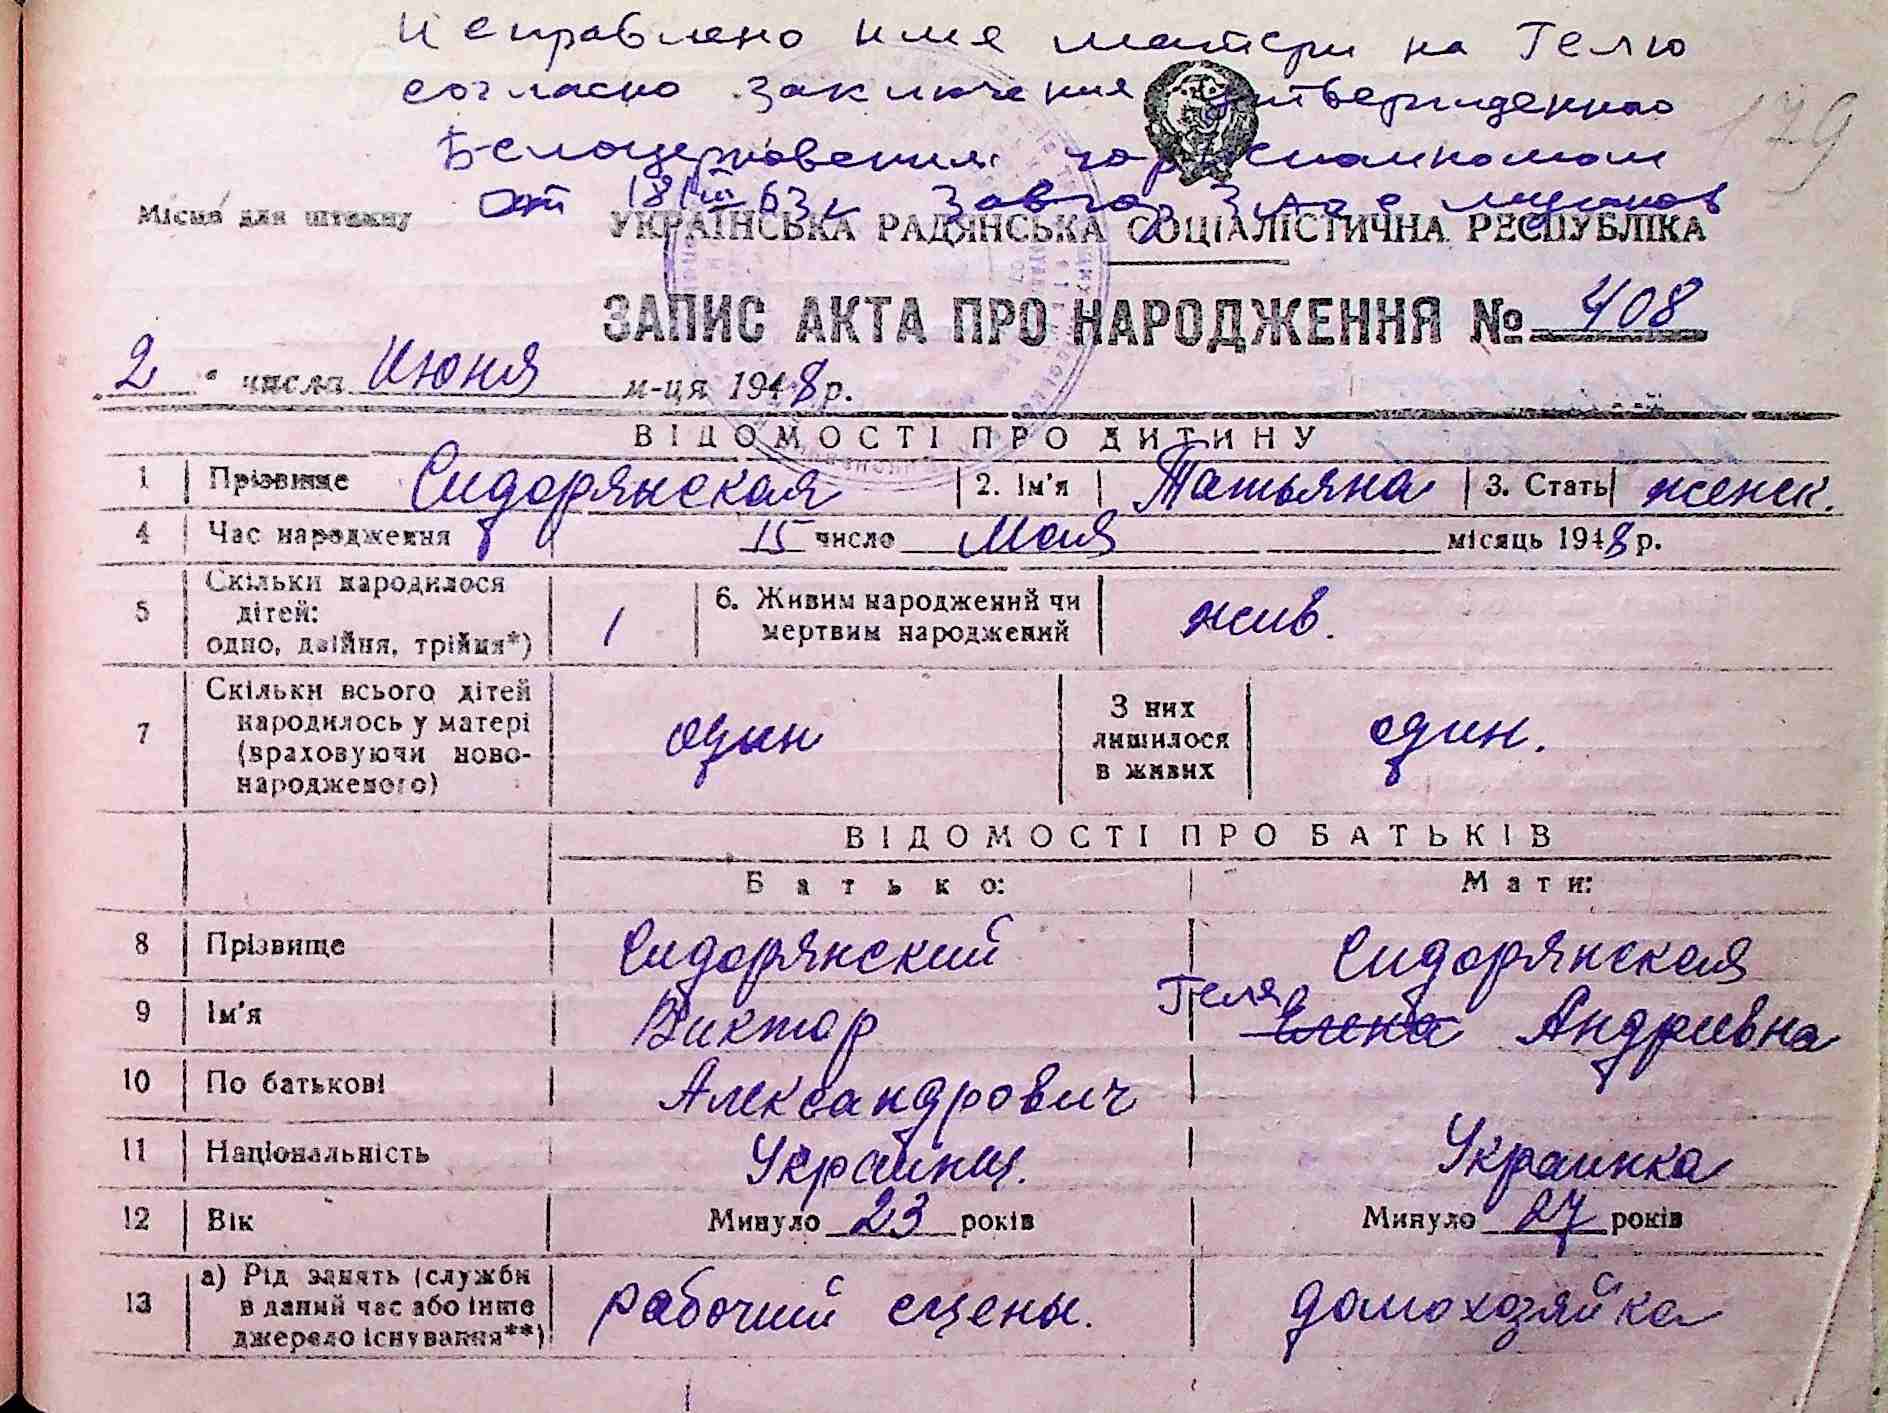 Исправлено имя матери на Гелю
согласно заключения утвержденного
Белоцерковским горисполкомом
от 18/III 63 г. Зав.
179
Місця для штампу
УКРАЇНСЬКА РАДЯНСЬКА СОЦІАЛІСТИЧНА РЕСПУБЛІКА
ЗАПИС АКТА ПРО НАРОДЖЕННЯ № 408
2 числа Июня м-ця 1948 р.
ВІДОМОСТІ ПРО ДИТИНУ
1 Прізвище Сидорянская 2. Ім'я Татьяна 3. Стать женск.
4 Час народження 15 число Мая місяць 1948 р.
5 Скільки народилося дітей: одно, двійня, трійня*) 1 6. Живим народжений чи мертвим народжений жив.
7 Скільки всього дітей народилось у матері (враховуючи новонародженого) один З них лишилося в живих один.
ВІДОМОСТІ ПРО БАТЬКІВ
Батько: Мати:
8 Прізвище Сидорянский Сидорянская
9 Ім'я Виктор Геля Елена Андриевна
10 По батькові Александрович
11 Національність Украинец. Украинка
12 Вік Минуло 23 років Минуло 27 років
13 а) Рід занять (служби в даний час або інше джерело існування**) рабочий сцены. домохозяйка